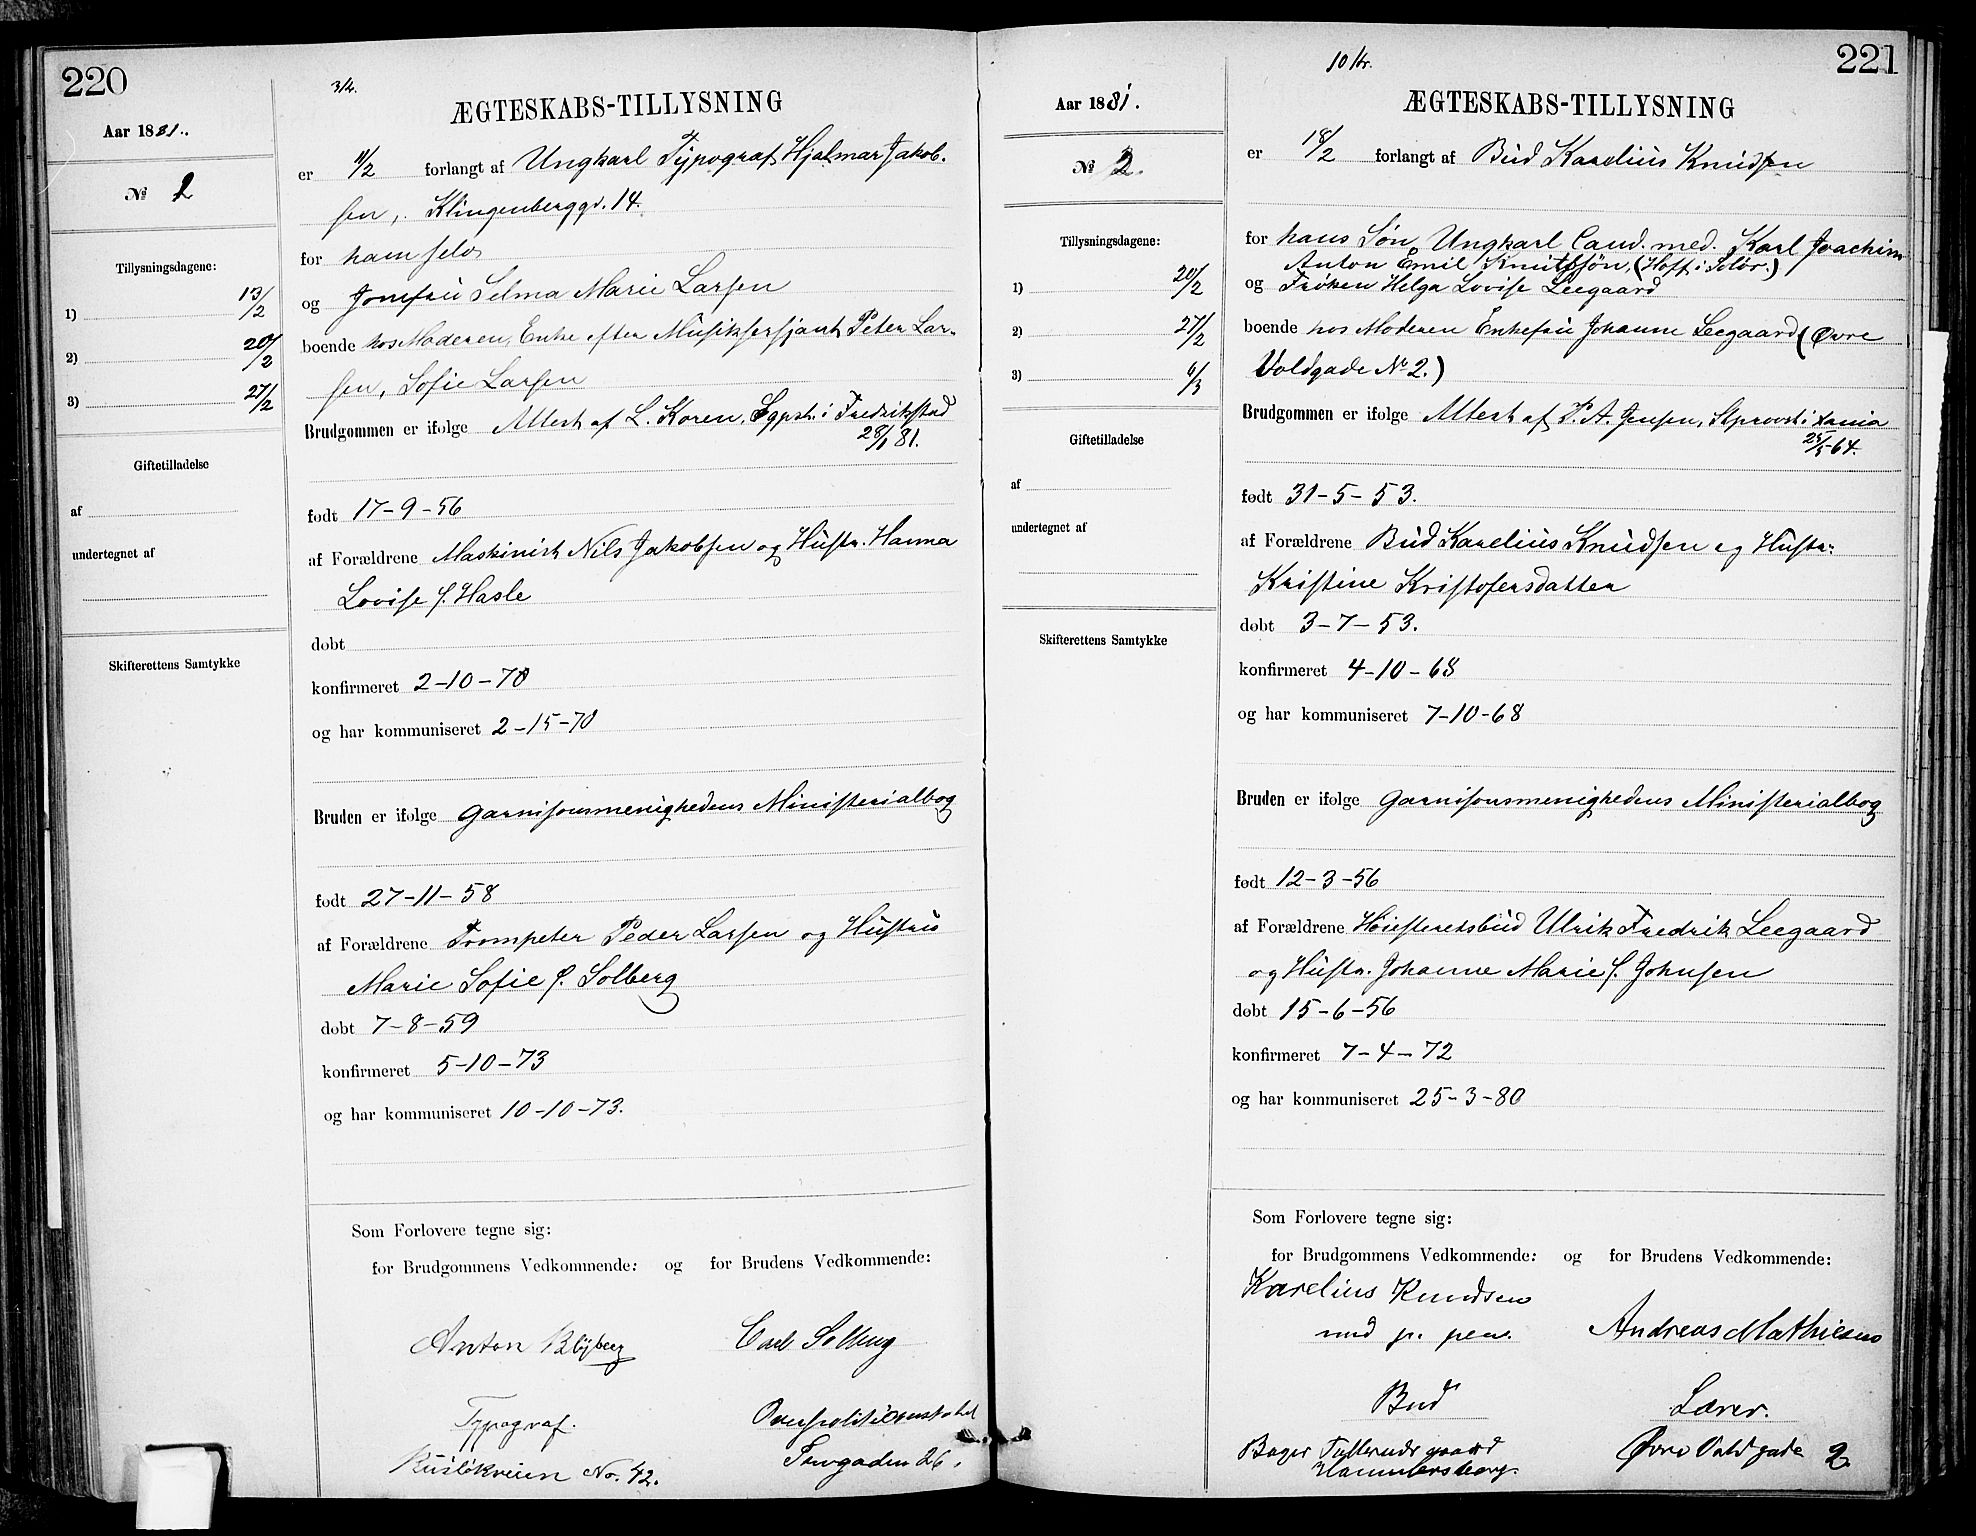 220
3 Kr.
ÆGTESKABS-TILLYSNING
Aar 1881.
№ 1
Tillysningsdagene:
1) 13/2
2) 20/2
3) 27/2
Giftetilladelse
af
undertegnet af
Skifterettens Samtykke
er 11/2 forlangt af Ungkarl Typograf Hjalmar Jakob-
sen, Klingenberggd. 14.
for ham selv
og Jomfru Selma Marie Larsen
boende hos Moderen, Enke efter Musiksersjant Peter Lar-
sen, Sofie Larsen
Brudgommen er ifølge Attest af L. Koren, Sgpst. i Fredrikstad
28/1 81.
født 17-9-56
af Forældrene Maskinist Nils Jakobsen og Hustr. Hanna
Lovise f. Hasle
døbt
konfirmeret 2-10-70
og har kommuniseret 2-15-70
Bruden er ifølge Garnisonsmenighedens Ministerialbog
født 27-11-58
af Forældrene Trompeter Peder Larsen og Hustru
Marie Sofie f. Solberg
døbt 7-8-59
konfirmeret 5-10-73
og har kommuniseret 10-10-73.
Som Forlovere tegne sig:
for Brudgommens Vedkommende: og for Brudens Vedkommende:
Anton Blyberg Carl Solberg
Typograf. Overpolitikonstabel
Rusløkveien No. 42. 26.
221
10 Kr.
ÆGTESKABS-TILLYSNING
Aar 1881.
№ 2.
Tillysningsdagene:
1) 20/2
2) 27/2
3) 6/3
Giftetilladelse
af
undertegnet af
Skifterettens Samtykke
er 18/2 forlangt af Bud Karelius Knudsen
for hans Søn, Ungkarl Cand. med. Karl Joachim
Anton Emil Knutssøn, (Hoff i Solør.)
og Frøken Helga Lovise Leegaard
boende hos Moderen Enkefru Johanne Leegaard (Øvre
Voldgade No 2.)
Brudgommen er ifølge Attest af P. A. Jensen, Stprovst i Xania
25/5-64.
født 31-5-53.
af Forældrene Bud Karelius Knudsen og Hustr.
Kristine Kristofersdatter
døbt 3-7-53.
konfirmeret 4-10-68
og har kommuniseret 7-10-68
Bruden er ifølge Garnisonsmenighedens Ministerialbog
født 12-3-56
af Forældrene Høiesteretsbud Ulrik Fredrik Leegaard
og Hustr. Johanne Marie f. Johnsen
døbt 15-6-56
konfirmeret 7-4-72
og har kommuniseret 25-3-80
Som Forlovere tegne sig:
for Brudgommens Vedkommende: og for Brudens Vedkommende:
Karelius Knudsen
med p. pen. Andreas Mathiesen
Bud Lærer.
Bager Øvre Voldgade 2
Hammersborg.